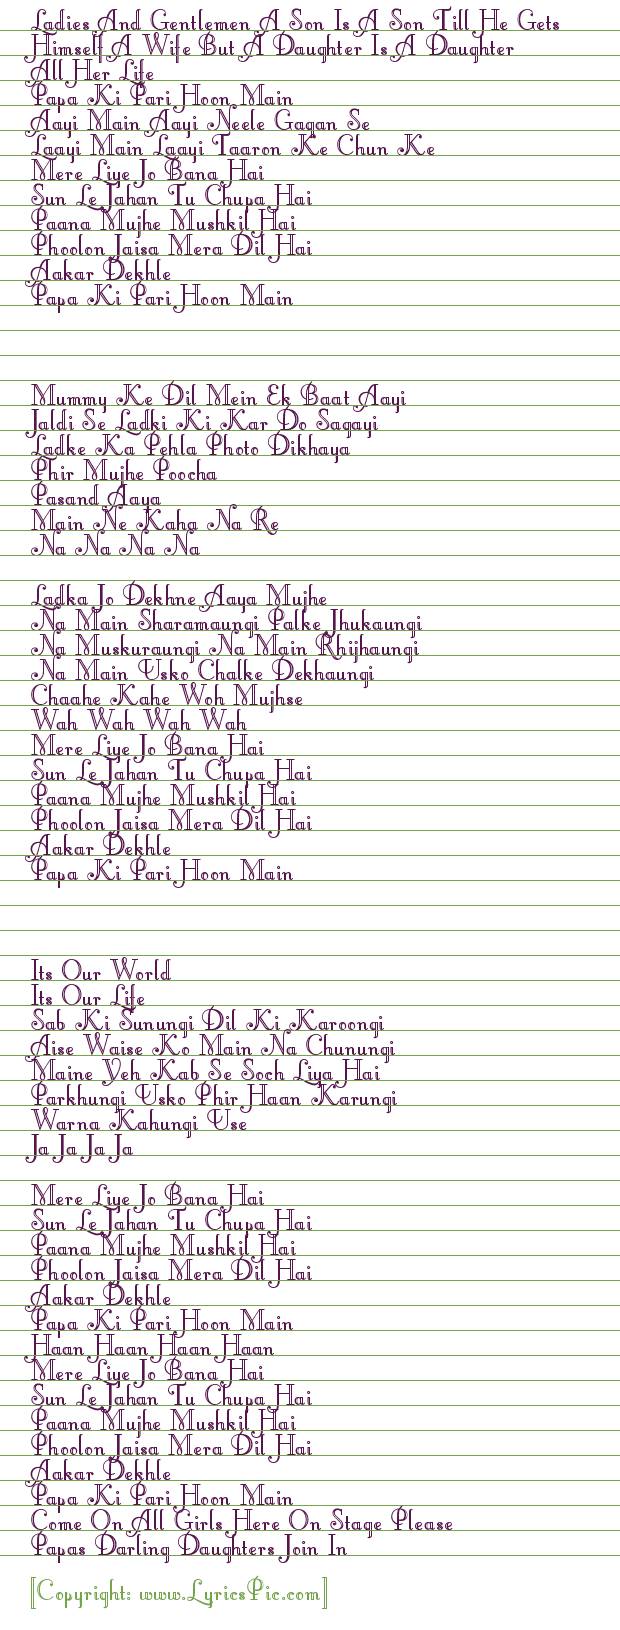 Ladies And Gentlemen A Son Is A Son Till He Gets
Himself A Wife But A Daughter Is A Daughter
All Her Life
Papa Ki Pari Hoon Main
Aayi Main Aayi Neele Gagan Se
Laayi Main Laayi Taaron Ke Chun Ke
Mere Liye Jo Bana Hai
Sun Le Jahan Tu Chupa Hai
Paana Mujhe Mushkil Hai
Phoolon Jaisa Mera Dil Hai
Aakar Dekhle
Papa Ki Pari Hoon Main
Mummy Ke Dil Mein Ek Baat Aayi
Jaldi Se Ladki Ki Kar Do Sagayi
Ladke Ka Pehla Photo Dikhaya
Phir Mujhe Poocha
Pasand Aaya
Main Ne Kaha Na Re
Na Na Na Na
Ladka Jo Dekhne Aaya Mujhe
Na Main Sharamaungi Palke Jhukaungi
Na Muskuraungi Na Main Rhijhaungi
Na Main Usko Chalke Dekhaungi
Chaahe Kahe Woh Mujhse
Wah Wah Wah Wah
Mere Liye Jo Bana Hai
Sun Le Jahan Tu Chupa Hai
Paana Mujhe Mushkil Hai
Phoolon Jaisa Mera Dil Hai
Aakar Dekhle
Papa Ki Pari Hoon Main
Its Our World
Its Our Life
Sab Ki Sunungi Dil Ki Karoongi
Aise Waise Ko Main Na Chunungi
Maine Yeh Kab Se Soch Liya Hai
Parkhungi Usko Phir Haan Karungi
Warna Kahungi Use
Ja Ja Ja Ja
Mere Liye Jo Bana Hai
Sun Le Jahan Tu Chupa Hai
Paana Mujhe Mushkil Hai
Phoolon Jaisa Mera Dil Hai
Aakar Dekhle
Papa Ki Pari Hoon Main
Haan Haan Haan Haan
Mere Liye Jo Bana Hai
Sun Le Jahan Tu Chupa Hai
Paana Mujhe Mushkil Hai
Phoolon Jaisa Mera Dil Hai
Aakar Dekhle
Papa Ki Pari Hoon Main
Come On All Girls Here On Stage Please
Papas Darling Daughters Join In
[Copyright: www.LyricsPic.com]